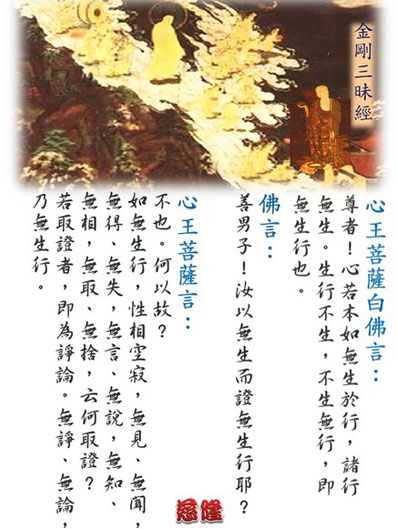 金剛三昧經
心王菩薩白佛言：
尊者！心若本如無生於行，諸行
無生。生行不生，不生無行，即
無生行也。
佛言：
善男子！汝以無生而證無生行耶？
心王菩薩言：
不也。何以故？
如無生行，性相空寂，無見、無聞，
無得、無失，無言、無說，無知、
無相，無取、無捨，云何取證？
若取證者，即為諍論。無諍、無論，
乃無生行。